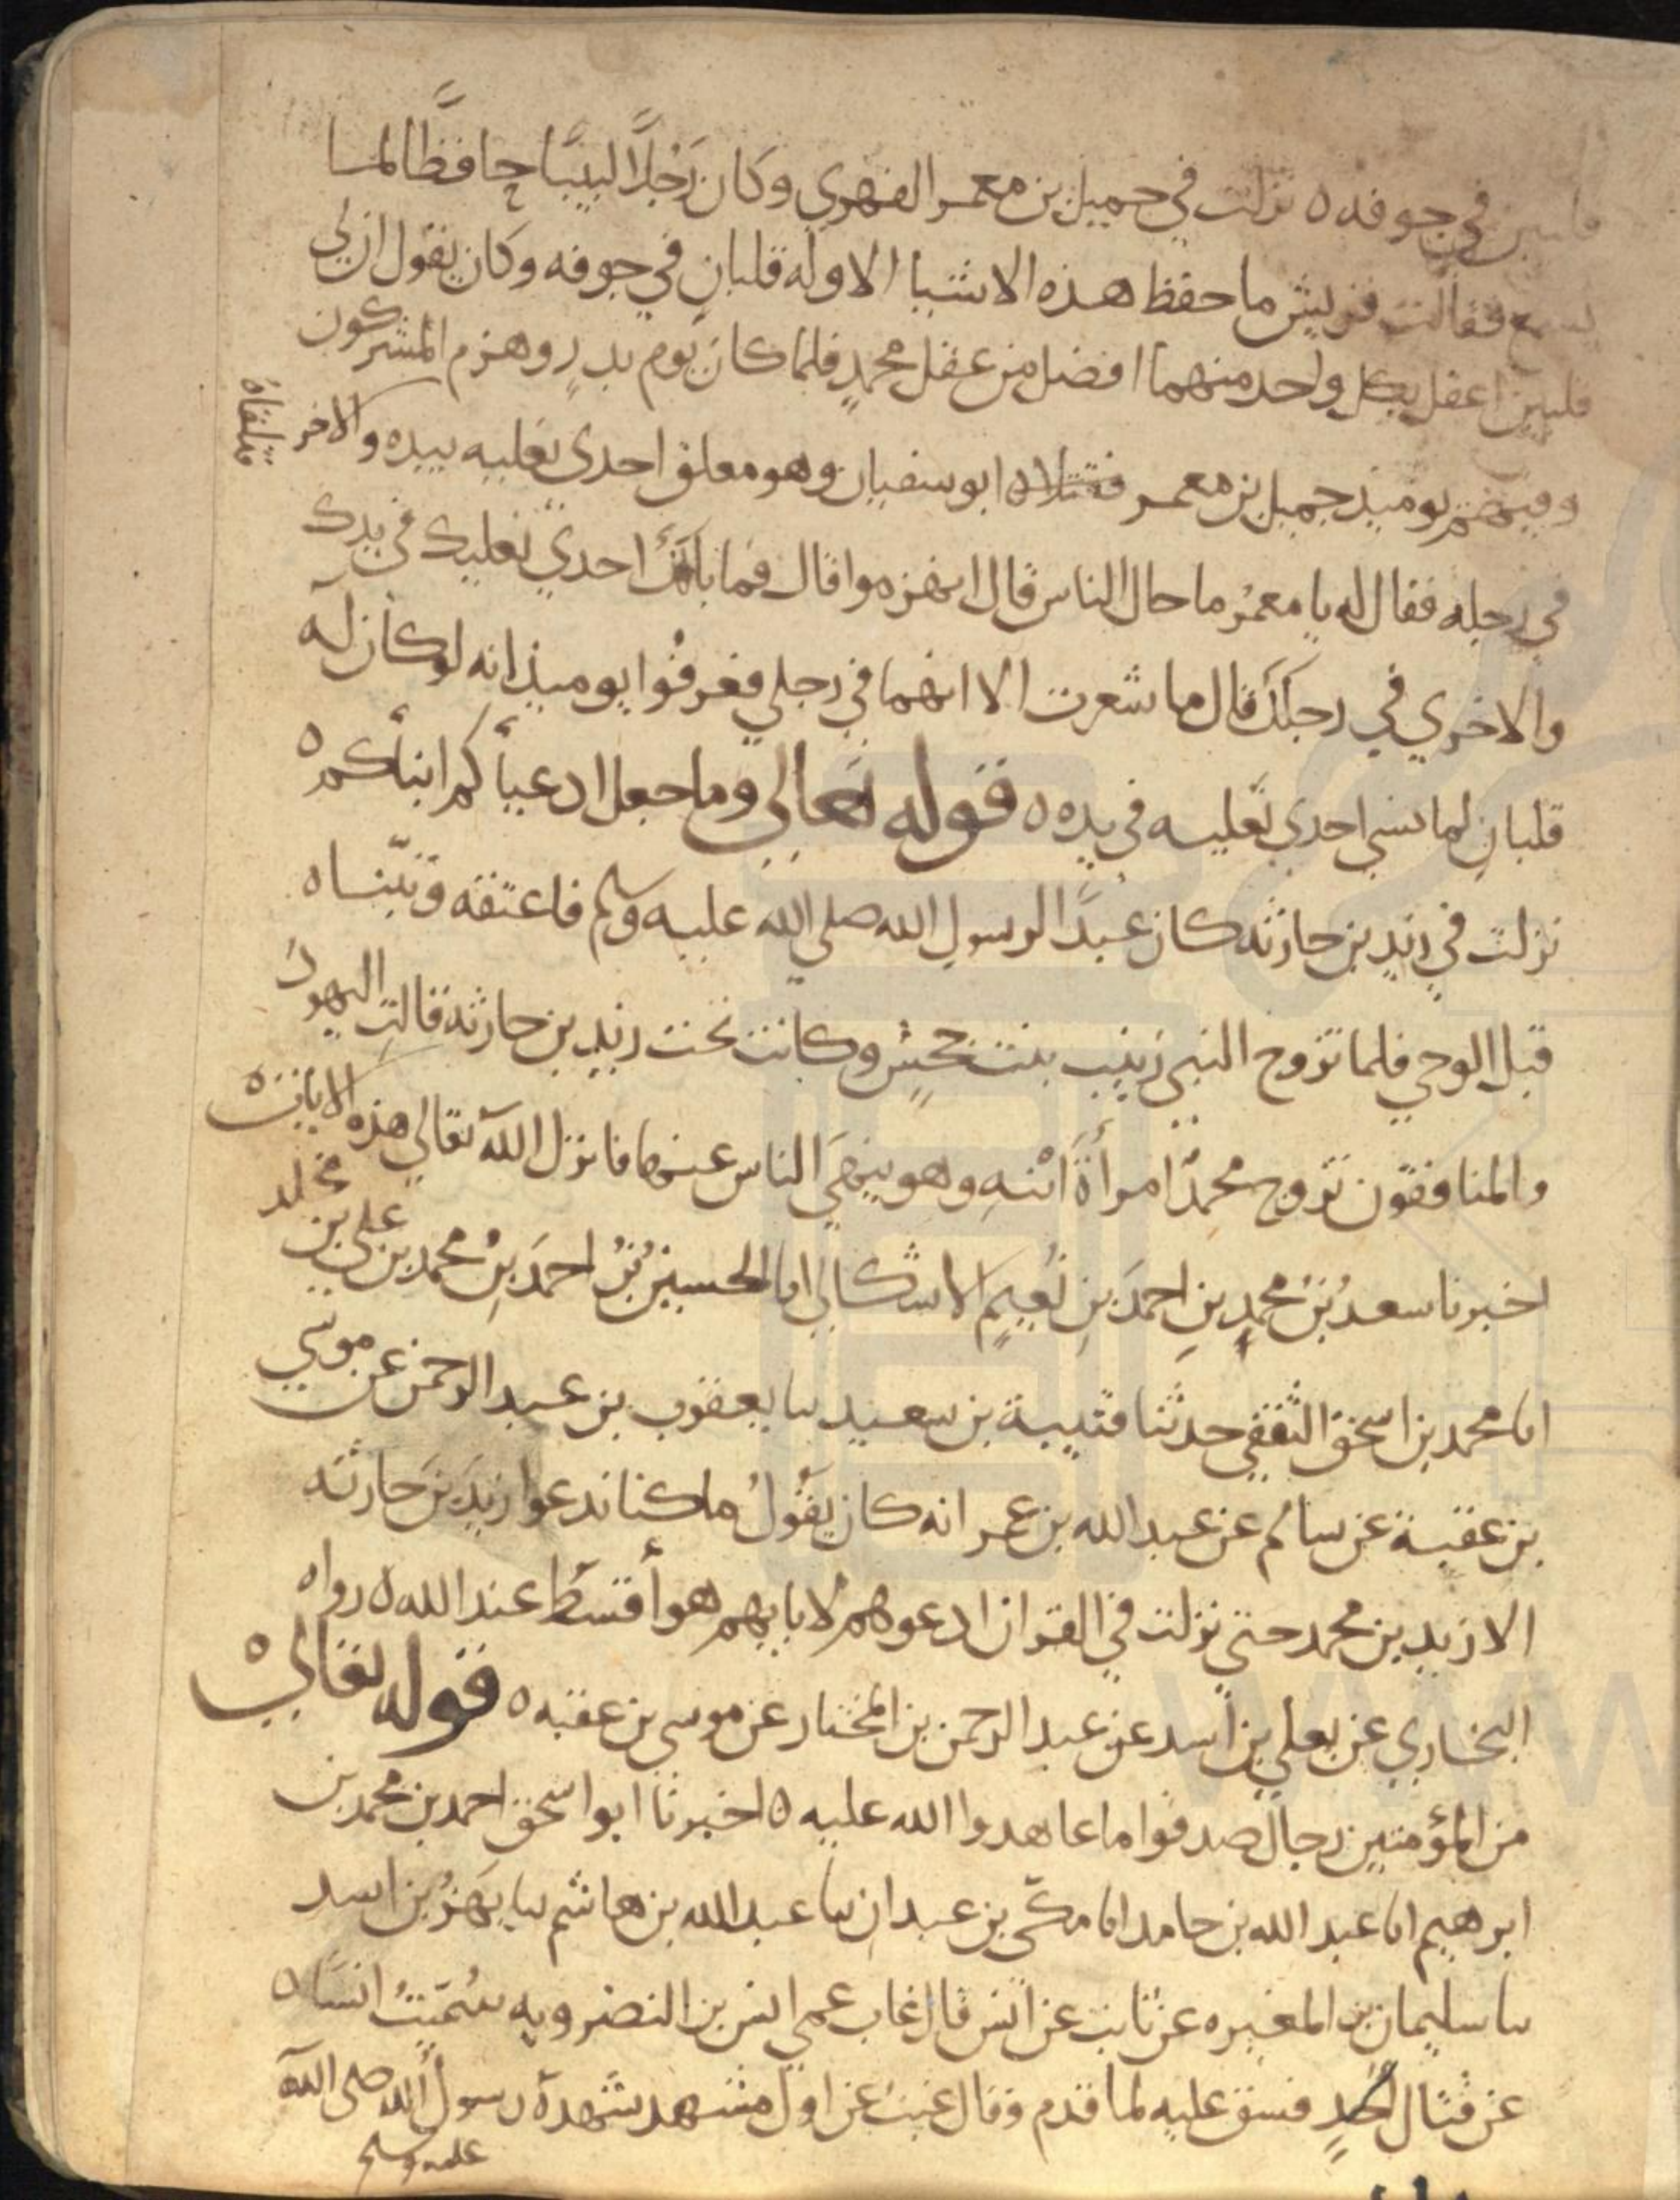 قلبين في جوفه ه نزلت في جميل بن معمر الفهري وكان رَجُلًا لبيبًا حافظًا لما
يسمع فقالت قريش ما حفظ هذه الاشيا الا وله قلبانِ في جوفه وكان يقول ان لي
قلبين اعقل بكل واحد منهما افضل من عقل محمدٍ فلما كان يوم بدرٍ وهزم المشركون
وفيهم يوميذ جميل بن معمر فتلقاه ابو سفيان وهو معلق احدى نعليه بيده والاخر
فتلقاه
في رجله فقال له يا معمرُ ما حال الناس قال انهزموا قال فما بالك احدي نعليك في يدك
والاخري في رجلك قال ما شعرت الا انهما في رجلي فعرفُوا يوميذ انه لو كان له
قلبانِ لما نسي احدي نَعليه في يده ه قوله تعالي وما جعل ادعيأكم ابنأكم ه
نزلت في زيدِ بن حارثه كان عبدًا لرسول الله صلي الله عليه وسلم فاعتقه وتبنّاه
قبل الوحي فلما تزوج النبي زينب بنت جحشٍ وكانت تحت زيدِ بن حارثه قالتِ اليهودُ
والمنافقون تزوج محمدٌ امرأةَ ابْنهِ وهو ينهَي الناس عنها فانزل الله تعالي هذه الاية ه
اخبرنا سعدُ بنُ محمدِ بنِ احمدَ بنِ نُعَيمٍ الاشكابي انا الحسينُ بنُ احمدَ بنِ محمدِ بن علي بن مخلد
انا محمد بن اسحق الثقفي حدثنا قتيبة بن سعيد نا يعقوب بن عبد الرحمن عن موسي
بن عقبة عن سالم عن عبد الله بن عمر انه كان يقُولُ ما كنا ندعوا زيدَ بنَ حارثه
الا زيد بن محمد حتي نزلت في القران ادعوهم لابايهم هو أقسَطُ عند الله ه رواه
البخاري عن يعلي بن اسد عن عبدِ الرحمن بن المختار عن موسي بن عقبه ه قوله تعالي ه
من المؤمنين رجال صدقوا ما عاهدوا الله عليه ه اخبرنا ابو اسحق احمد بن محمد بن
ابرهيم انا عبد الله بن حامد انا مكّي بن عبدان نا عبد الله بن هاشم نا بَهْزُ بن اسد
نا سليمان بن المغيره عن ثابت عن انس قال غاب عمي انس بن النضر وبه سُمّيتُ انسًا ه
عن قتال احدٍ فشق عليه لما قدم وقال غبت عن اول مشهد شهدهُ رسول الله صلي الله
عليه وسلم